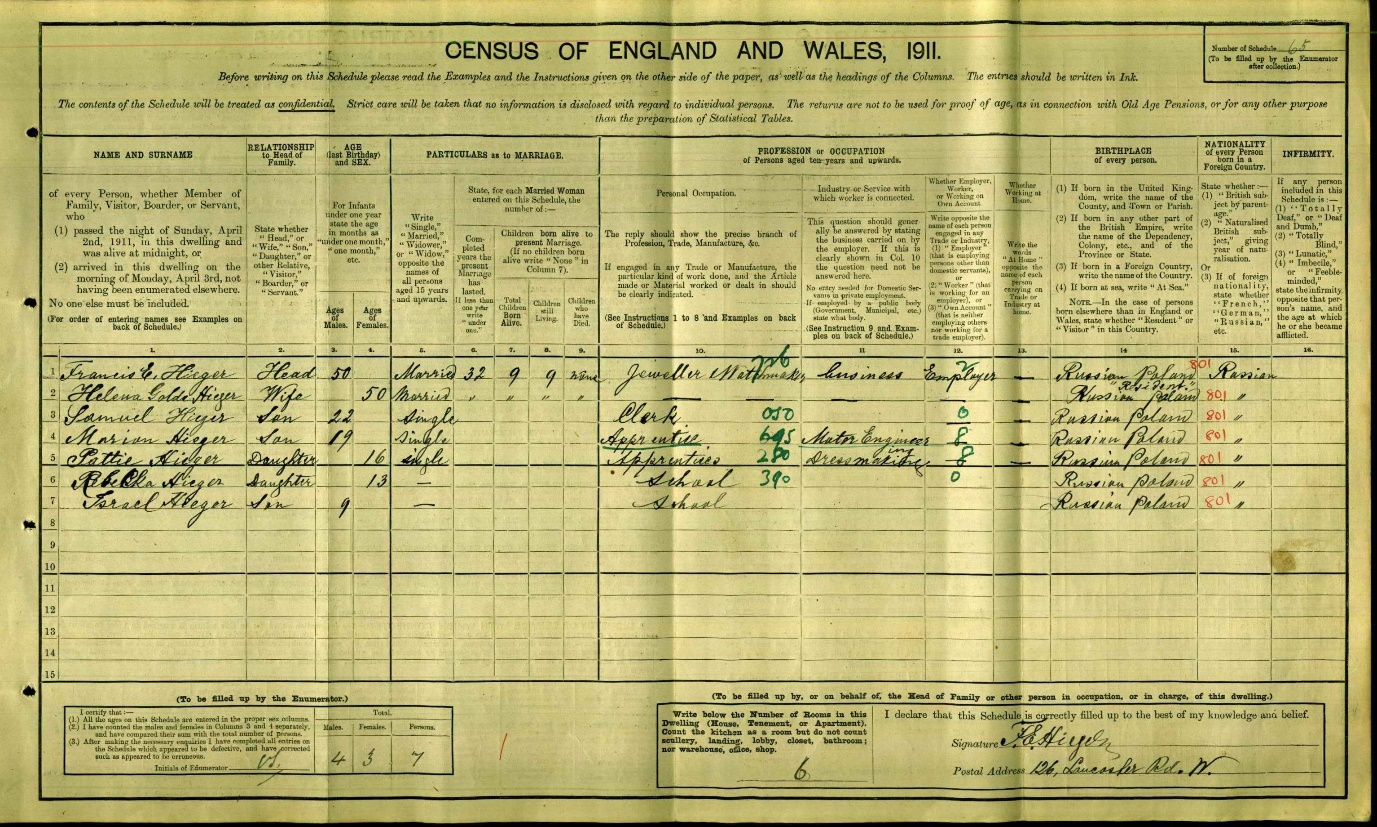 CENSUS OF ENGLAND AND WALES, 1911.
Number of Schedule 65
(To be filled up by the Enumerator after collection.)
Before writing on this Schedule please read the Examples and the Instructions given on the other side of the paper, as well as the headings of the Columns. The entries should be written in Ink.
The contents of the Schedule will be treated as confidential. Strict care will be taken that no information is disclosed with regard to individual persons. The returns are not to be used for proof of age, as in connection with Old Age Pensions, or for any other purpose
than the preparation of Statistical Tables.
NAME AND SURNAME
of every Person, whether Member of Family, Visitor, Boarder, or Servant, who
(1) passed the night of Sunday, April 2nd, 1911, in this dwelling and was alive at midnight, or
(2) arrived in this dwelling on the morning of Monday, April 3rd, not having been enumerated elsewhere.
No one else must be included.
(For order of entering names see Examples on back of Schedule.)
RELATIONSHIP to Head of Family.
State whether "Head," or "Wife," "Son," "Daughter," or other Relative, "Visitor," "Boarder," or "Servant."
AGE (last Birthday) and SEX.
For Infants under one year state the age in months as "under one month," "one month," etc.
Ages of Males.
Ages of Females.
PARTICULARS as to MARRIAGE.
Write "Single," "Married," "Widower," or "Widow," opposite the names of all persons aged 15 years and upwards.
State, for each Married Woman entered on this Schedule, the number of:—
Completed years the present Marriage has lasted. If less than one year write "under one."
Children born alive to present Marriage. (If no children born alive write "None" in Column 7).
Total Children Born Alive.
Children still Living.
Children who have Died.
PROFESSION or OCCUPATION
of Persons aged ten years and upwards.
Personal Occupation.
The reply should show the precise branch of Profession, Trade, Manufacture, &c.
If engaged in any Trade or Manufacture, the particular kind of work done, and the Article made or Material worked or dealt in should be clearly indicated.
(See Instructions 1 to 8 and Examples on back of Schedule.)
Industry or Service with which worker is connected.
This question should generally be answered by stating the business carried on by the employer. If this is clearly shown in Col. 10 the question need not be answered here.
No entry needed for Domestic Servants in private employment. If employed by a public body (Government, Municipal, etc.) state what body.
(See Instruction 9 and Examples on back of Schedule.)
Whether Employer, Worker, or Working on Own Account.
Write opposite the name of each person engaged in any Trade or Industry, (1) "Employer" (that is employing persons other than domestic servants), or (2) "Worker" (that is working for an employer), or (3) "Own Account" (that is neither employing others nor working for a trade employer).
Whether Working at Home.
Write the words "At Home" opposite the name of each person carrying on Trade or Industry at home.
BIRTHPLACE of every person.
(1) If born in the United Kingdom, write the name of the County, and Town or Parish.
(2) If born in any other part of the British Empire, write the name of the Dependency, Colony, etc., and of the Province or State.
(3) If born in a Foreign Country, write the name of the Country.
(4) If born at sea, write "At Sea."
NOTE.—In the case of persons born elsewhere than in England or Wales, state whether "Resident" or "Visitor" in this Country.
NATIONALITY of every Person born in a Foreign Country.
State whether:—
(1) "British subject by parentage."
(2) "Naturalised British subject," giving year of naturalisation.
Or
(3) If of foreign nationality, state whether "French," "German," "Russian," etc.
INFIRMITY.
If any person included in this Schedule is:—
(1) "Totally Deaf," or "Deaf and Dumb,"
(2) "Totally Blind,"
(3) "Lunatic,"
(4) "Imbecile," or "Feeble-minded,"
state the infirmity opposite that person's name, and the age at which he or she became afflicted.
1. 2. 3. 4. 5. 6. 7. 8. 9. 10. 11 12. 13. 14 15. 16.
1 Francis E. Hieger Head 50 Married 32 9 9 none Jeweller business Employer — Russian Poland 801 Russian
"Resident"
2 Helena Golde Hieger Wife 50 Married " " " " — — — — — Russian Poland 801 "
3 Samuel Hieger Son 22 Single Clerk 050 0 — Russian Poland 801 "
4 Marion Hieger Son 19 Single Apprentice 695 Motor Engineer 8 — Russian Poland 801 "
5 Pattie Hieger Daughter 16 single Apprentices 280 Dressmaking 8 — Russian Poland 801 "
6 Rebecka Hieger Daughter 13 — School 390 0 Russian Poland 801 "
7 Israel Hieger Son 9 — School Russian Poland 801 "
8
9
10
11
12
13
14
15
(To be filled up by the Enumerator.)
I certify that:—
(1.) All the ages on this Schedule are entered in the proper sex columns.
(2.) I have counted the males and females in Columns 3 and 4 separately, and have compared their sum with the total number of persons.
(3.) After making the necessary enquiries I have completed all entries on the Schedule which appeared to be defective, and have corrected such as appeared to be erroneous.
Initials of Enumerator
Total.
Males. Females. Persons.
4 3 7
(To be filled up by, or on behalf of, the Head of Family or other person in occupation, or in charge, of this dwelling.)
Write below the Number of Rooms in this Dwelling (House, Tenement, or Apartment). Count the kitchen as a room but do not count scullery, landing, lobby, closet, bathroom; nor warehouse, office, shop.
6
I declare that this Schedule is correctly filled up to the best of my knowledge and belief.
Signature F. E. Hieger
Postal Address 126, Lancaster Rd. W.